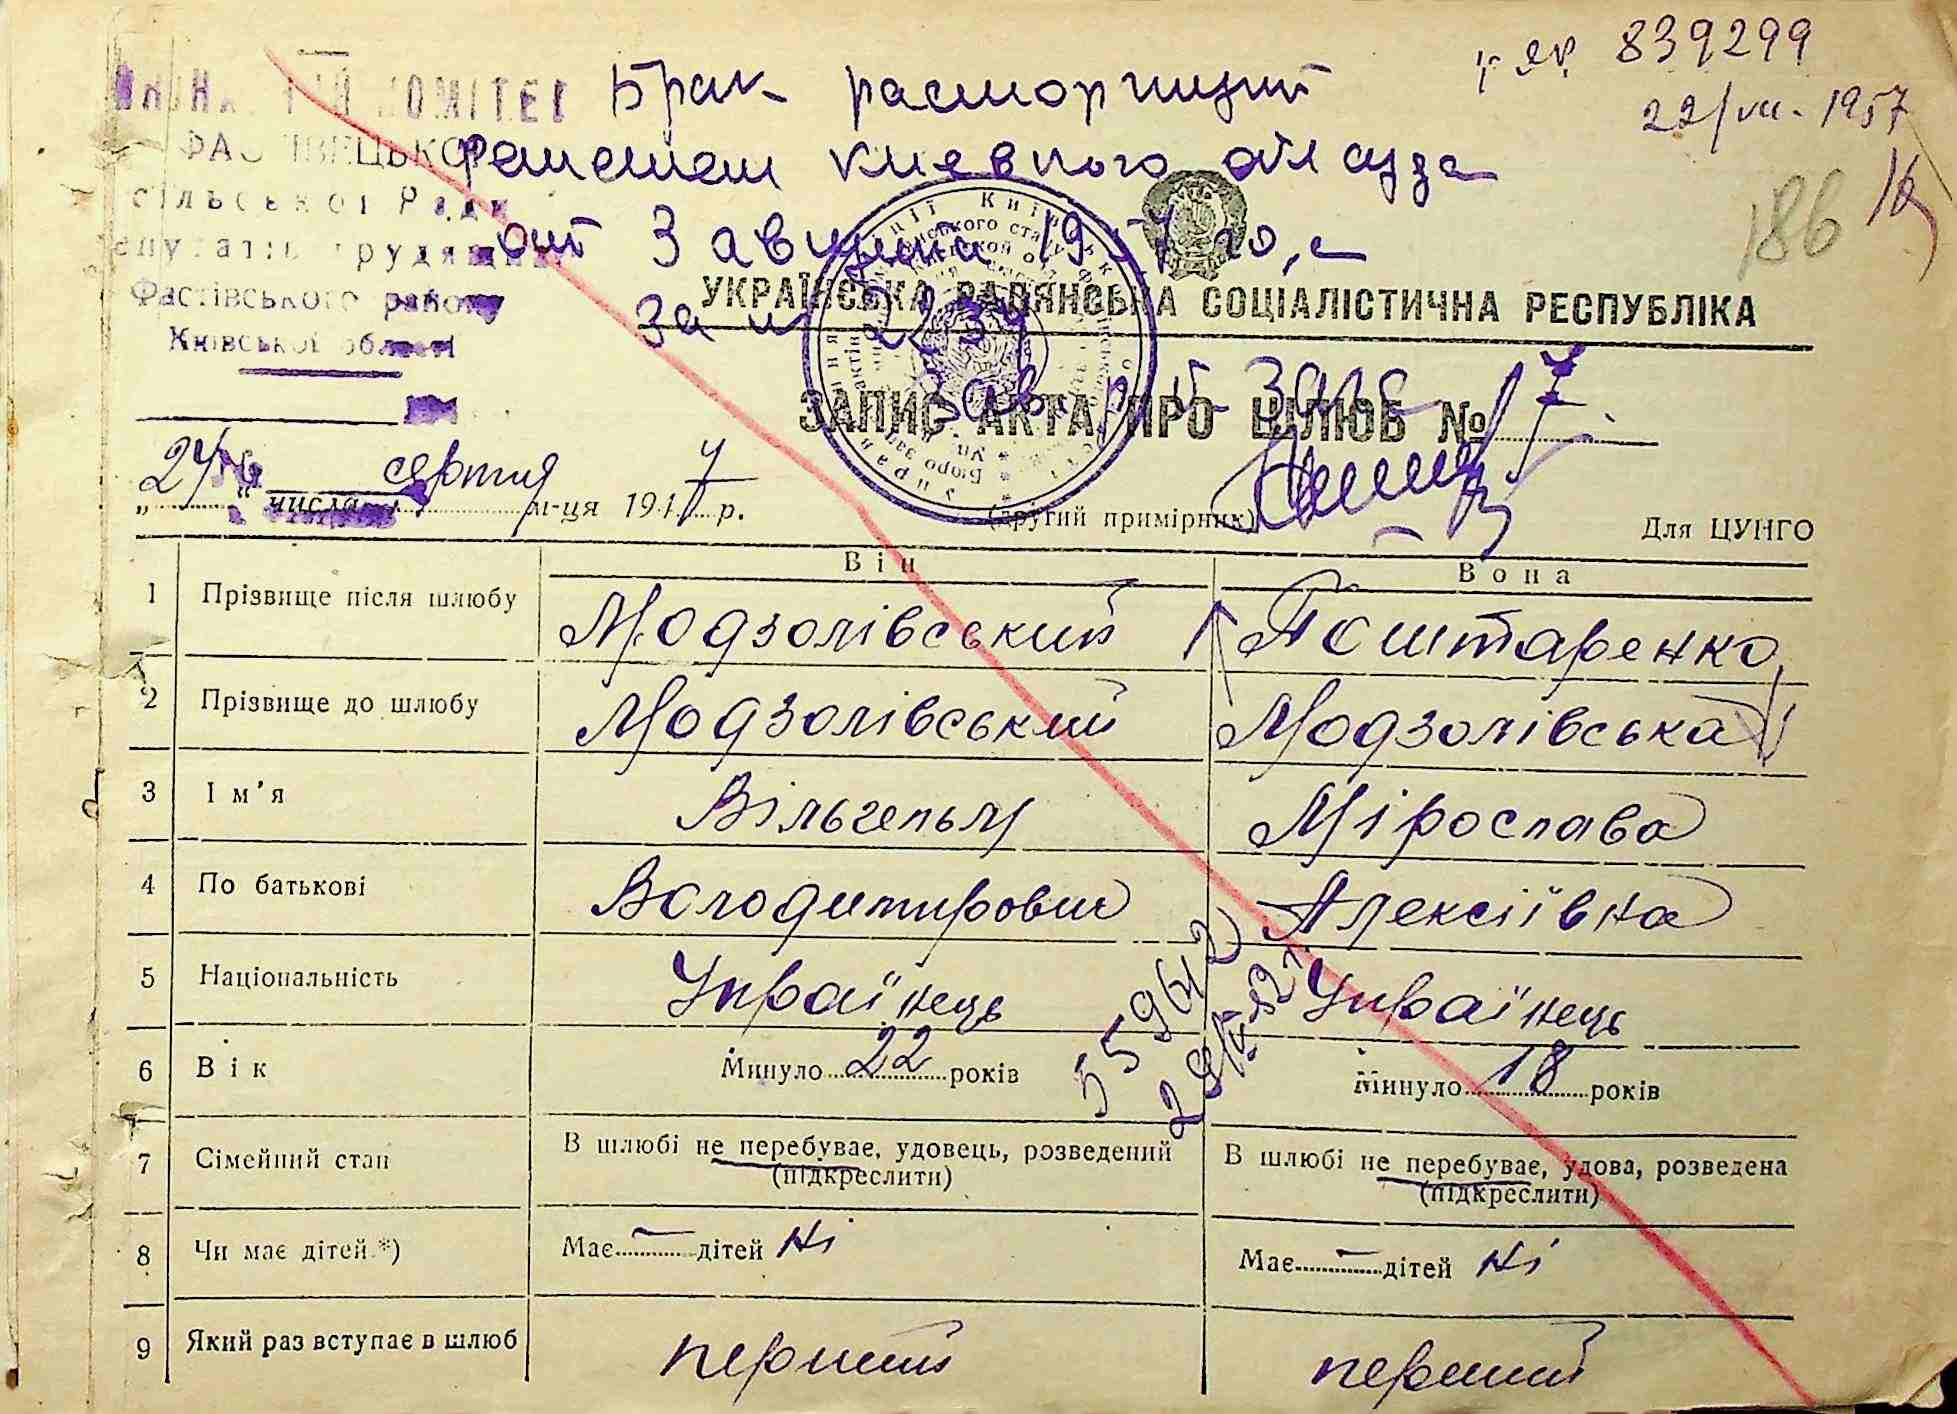 839299
22/VII - 1957
186
Брак расторгнут
решением Киевского обл суда
от 3 августа 1957 года
за № 2232
КОМІТЕТ
сільської Ради
Фастівського району
Київської області
УКРАЇНСЬКА РАДЯНСЬКА СОЦІАЛІСТИЧНА РЕСПУБЛІКА
ЗАПИС АКТА ПРО ШЛЮБ № 7
„24“ числа серпня м-ця 1947 р.
(другий примірник)
Для ЦУНГО
Він Вона
1 Прізвище після шлюбу Модзолівський Поштаренко
2 Прізвище до шлюбу Модзолівський Модзолівська
3 Ім'я Вільгельм Мірослава
4 По батькові Володимирович Алексіївна
5 Національність Українець Українець
6 Вік Минуло 22 років Минуло 18 років
559612
7 Сімейний стан В шлюбі не перебуває, удовець, розведений (підкреслити) В шлюбі не перебуває, удова, розведена (підкреслити)
8 Чи має дітей *) Має — дітей Ні Має — дітей Ні
9 Який раз вступає в шлюб перший перший